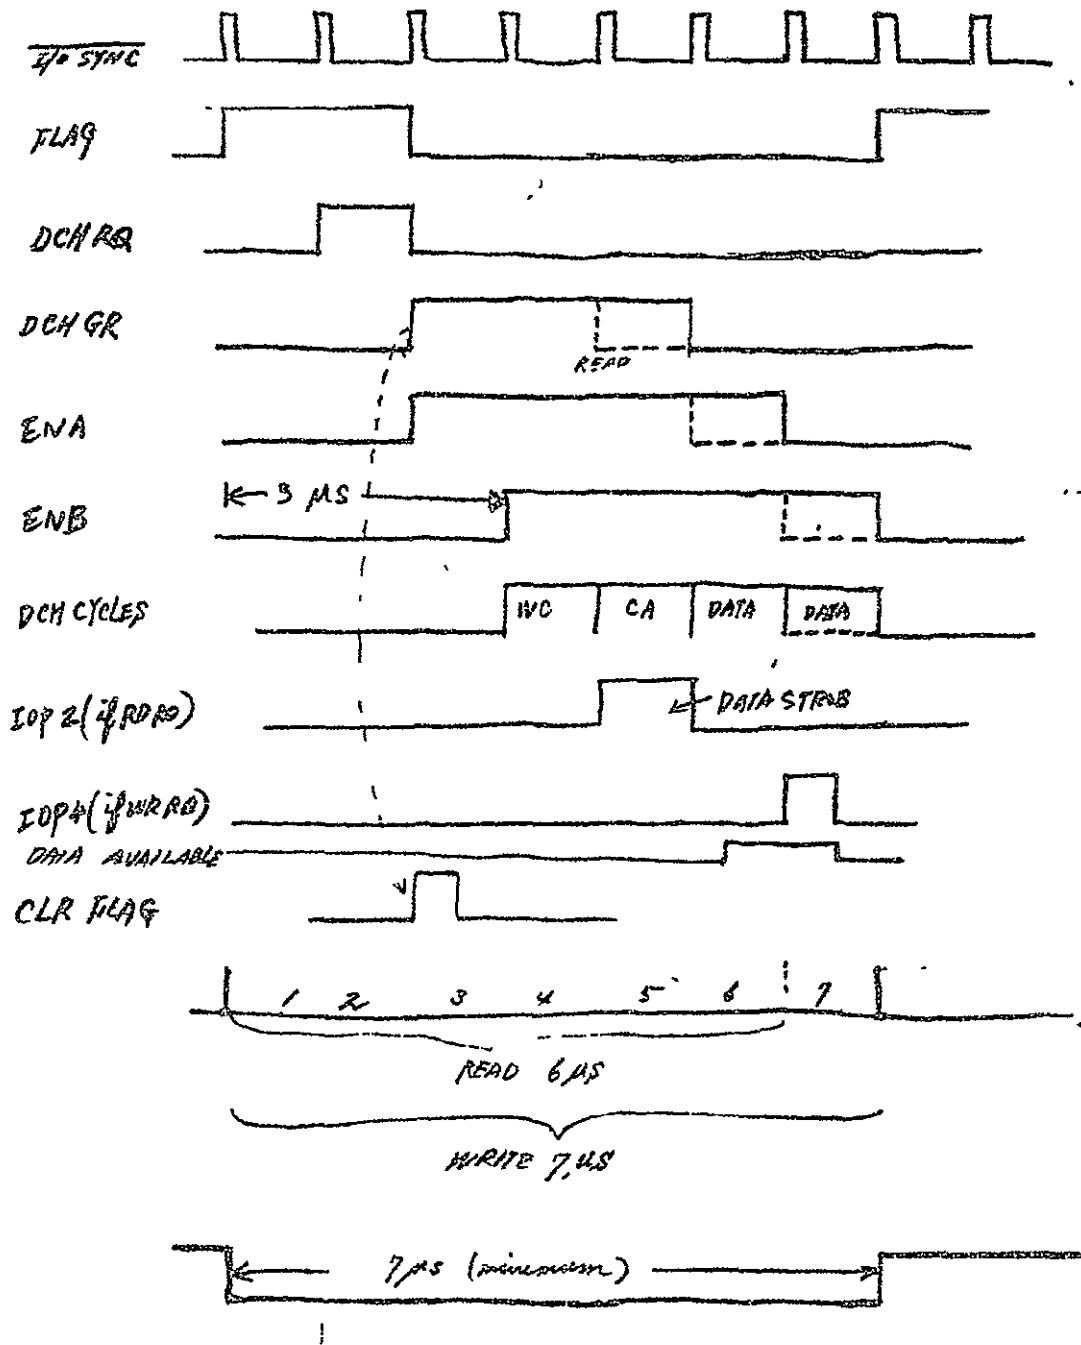 I/O SYNC
FLAG
DCH RQ
DCH GR
READ
ENA
3 μS
ENB
DCH CYCLES
WC CA DATA DATA
IOP 2 (if RDRQ)
DATA STROB
IOP4 (if WRRQ)
DATA AVAILABLE
CLR FLAG
1 2 3 4 5 6 7
READ 6 μS
WRITE 7 μS
7 μs (minimum)